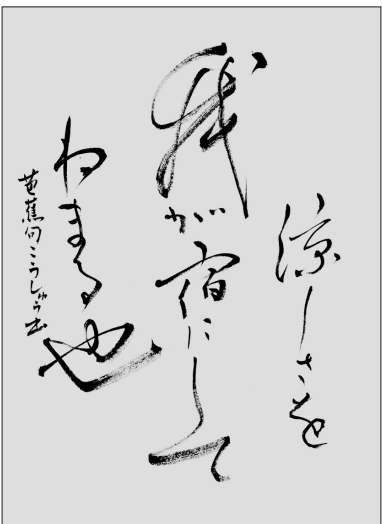 涼しさを
我が宿にして
ねまる也
芭蕉句こうしゅう書